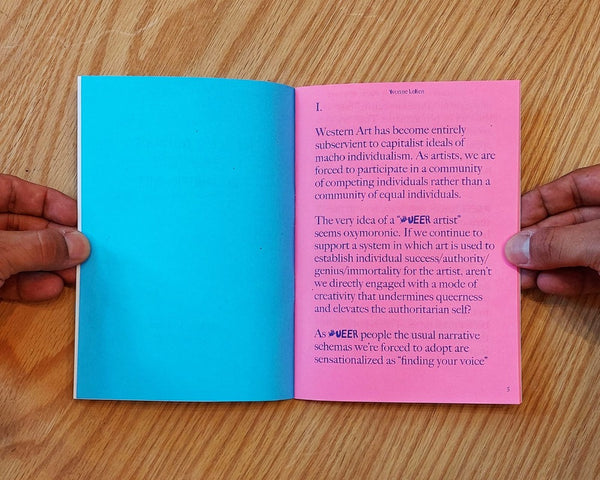 Yvonne LeBien
I.
Western Art has become entirely
subservient to capitalist ideals of
macho individualism. As artists, we are
forced to participate in a community
of competing individuals rather than a
community of equal individuals.
The very idea of a “QUEER artist”
seems oxymoronic. If we continue to
support a system in which art is used to
establish individual success/authority/
genius/immortality for the artist. aren't
we directly engaged with a mode of
creativity that undermines queerness
and elevates the authoritarian self?
As QUEER people the usual narrative
schemas we're forced to adopt are
sensationalized as “finding your voice”
5